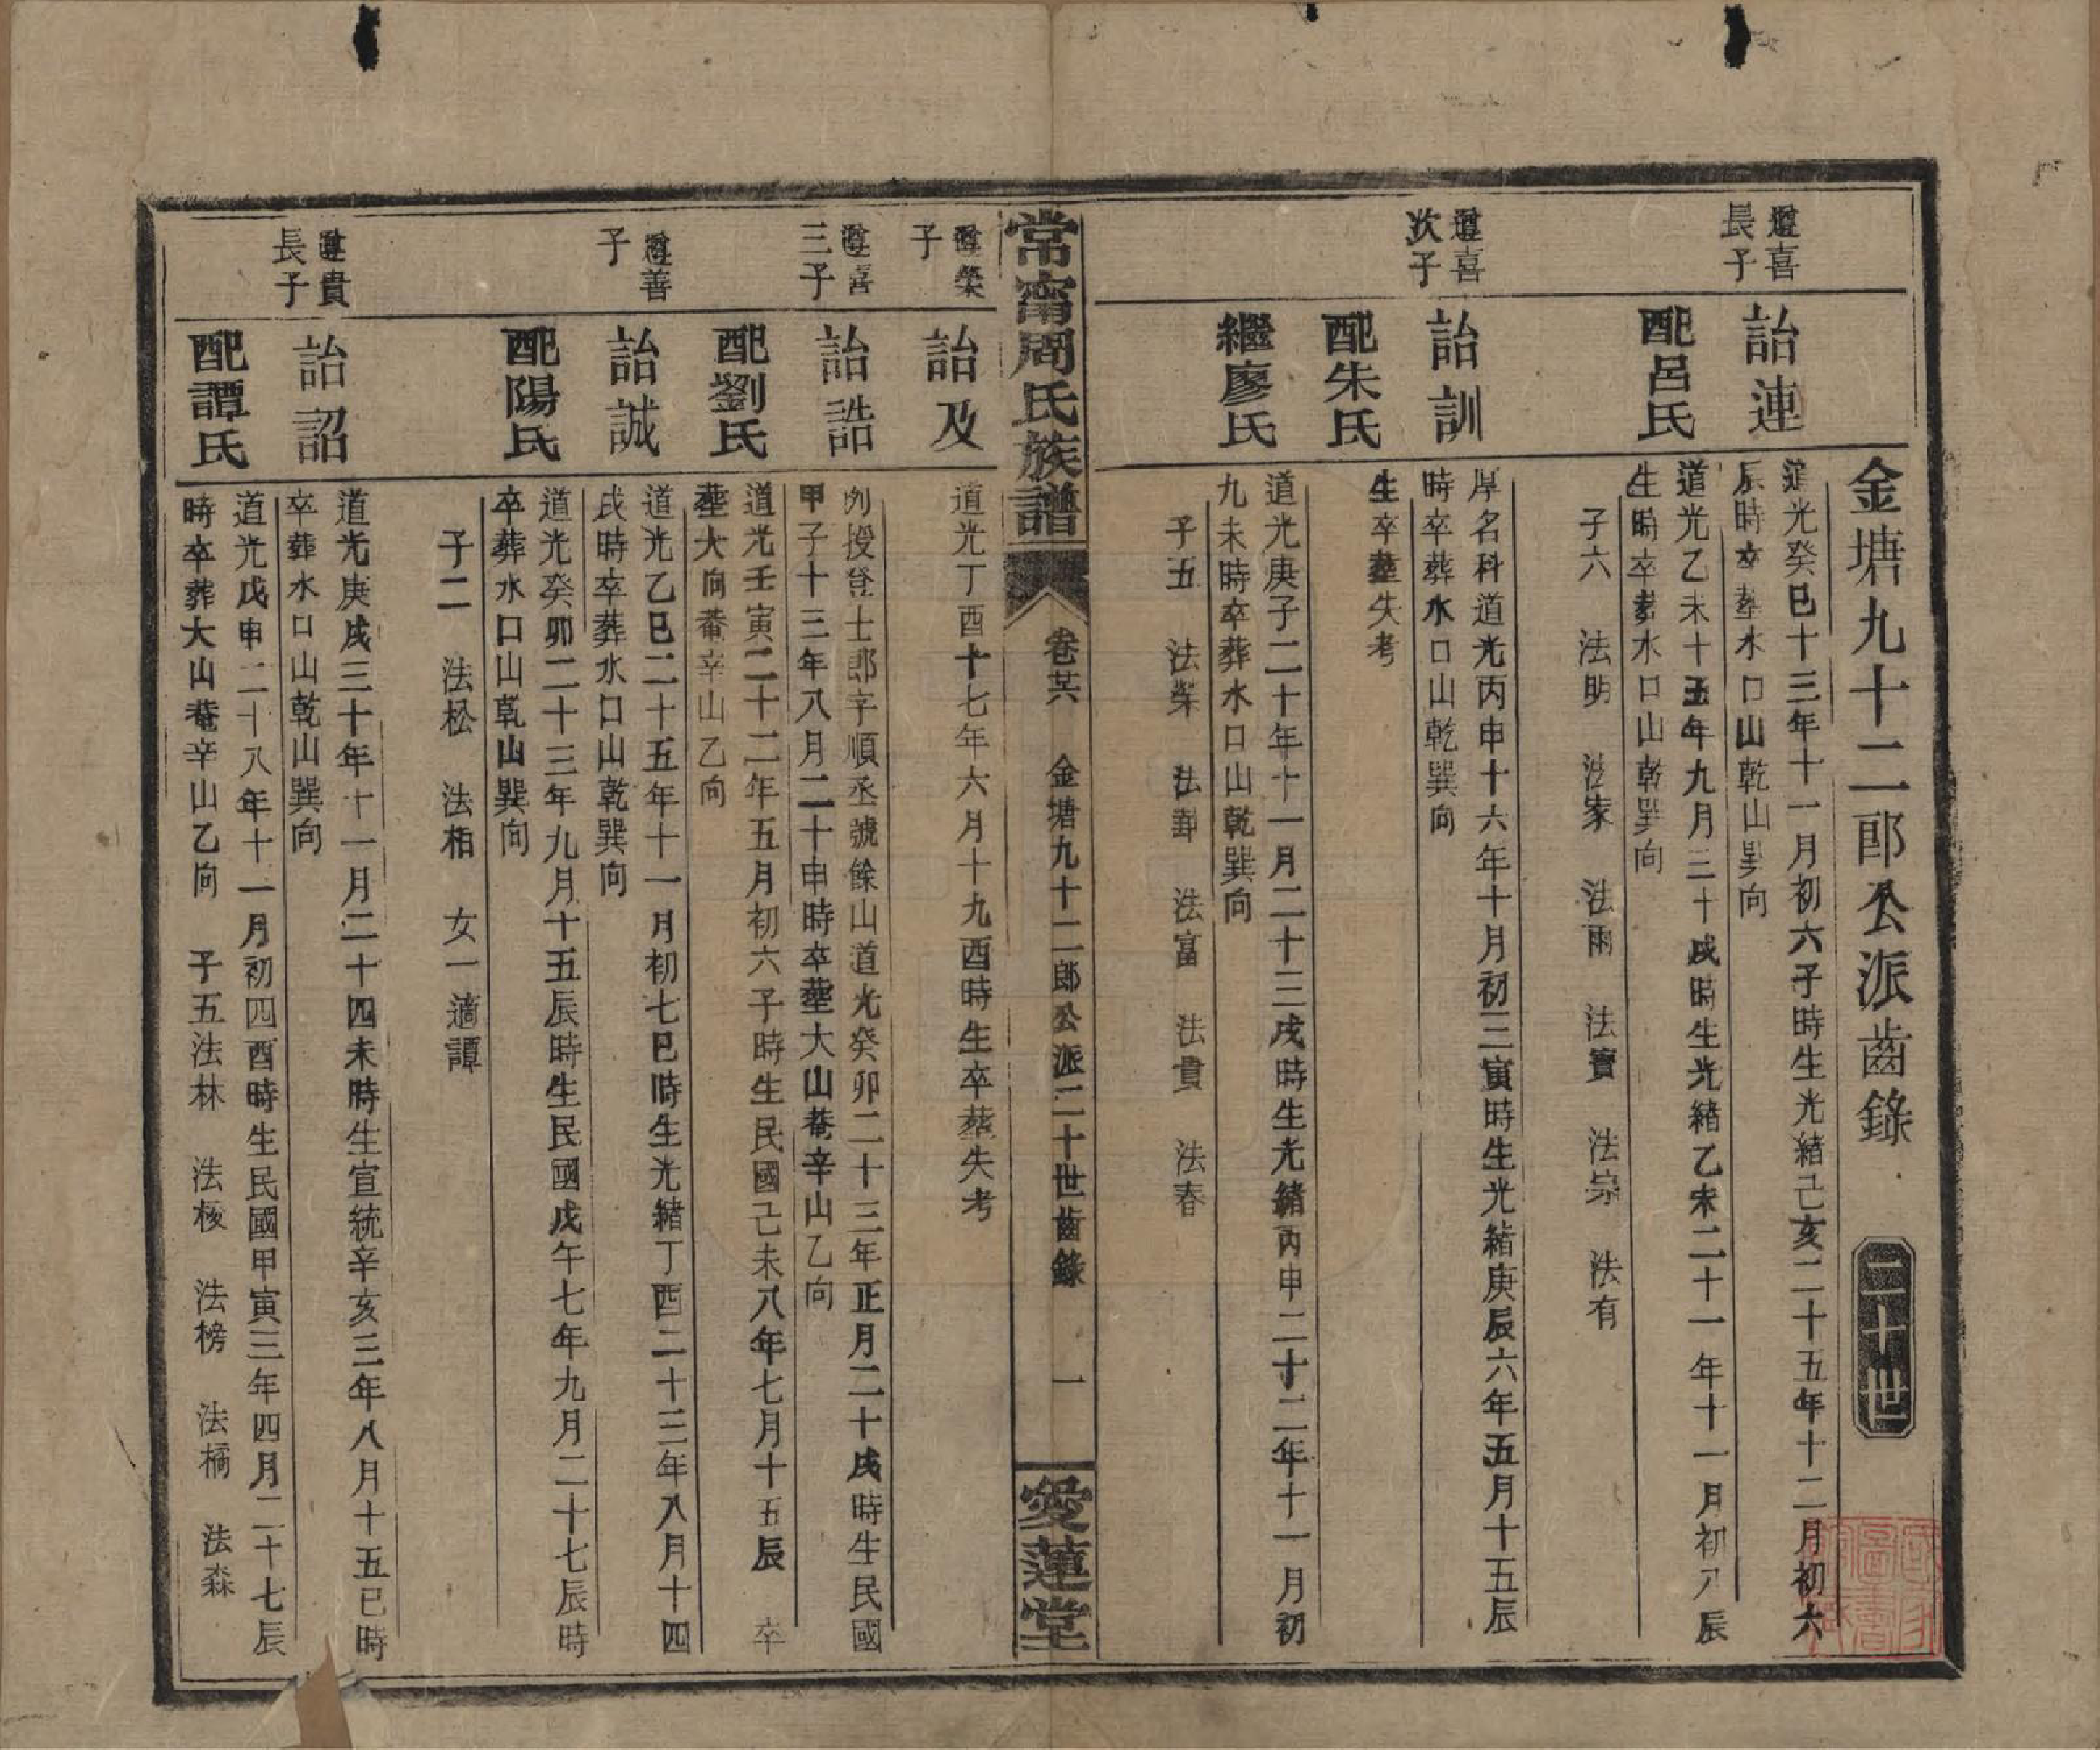 金塘九十二郎公派齒錄
二十世
遵喜
長子
詒連
道光癸巳十三年十一月初六子時生光緒己亥二十五年十二月初六
辰時卒塟水口山乾山巽向
配呂氏
道光乙未十五年九月三十戌時生光緒乙未二十一年十一月初八辰
生時卒塟水口山乾巽向
子六 法明 法家 法雨 法寶 法宗 法有
遵喜
次子
詒訓
厚名科道光丙申十六年十月初三寅時生光緒庚辰六年五月十五辰
時卒葬水口山乾巽向
配朱氏
生卒塟失考
繼廖氏
道光庚子二十年十一月二十三戌時生光緒丙申二十二年十一月初
九未時卒葬水口山乾巽向
子五 法榮 法 法富 法貴 法春
常甯周氏族譜
卷廿六 金塘九十二郎公派二十世齒錄 一
愛蓮堂
遵榮
子
詒及
道光丁酉十七年六月十九酉時生卒葬失考
遵喜
三子
詒誥
例授登士郎字順丞號餘山道光癸卯二十三年正月二十戌時生民國
甲子十三年八月二十申時卒塟大山菴辛山乙向
配劉氏
道光壬寅二十二年五月初六子時生民國己未八年七月十五辰 卒
塟大向菴辛山乙向
遵善
子
詒誠
道光乙巳二十五年十一月初七巳時生光緒丁酉二十三年八月十四
戌時卒葬水口山乾巽向
配陽氏
道光癸卯二十三年九月十五辰時生民國戊午七年九月二十七辰時
卒葬水口山乾山巽向
子二 法松 法栢 女一適譚
遵貴
長子
詒詔
道光庚戌三十年十一月二十四未時生宣統辛亥三年八月十五巳時
卒葬水口山乾山巽向
配譚氏
道光戊申二十八年十一月初四酉時生民國甲寅三年四月二十七辰
時卒葬大山菴辛山乙向 子五法林 法棱 法榜 法橘 法森